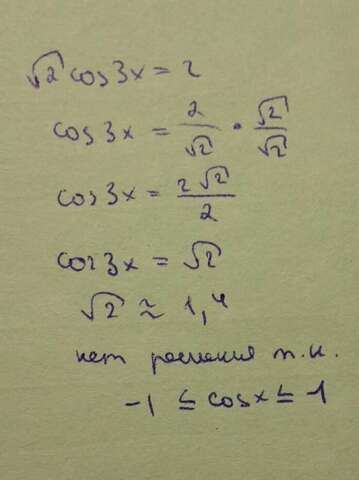 √2 cos3x = 2
cos3x = 2/√2 · √2/√2
cos3x = 2√2/2
cos3x = √2
√2 ≈ 1,4
нет решения т.к.
-1 ≤ cosx ≤ 1